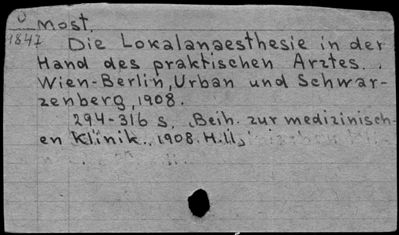 O
Most.
1847
Die Lokalanaesthesie in der
Hand des praktischen Arztes. .
Wien-Berlin, Urban und Schwar-
zenberg, 1908.
294-316 s. Beih. zur medizinisch-
en Klinik., 1908. H.11,